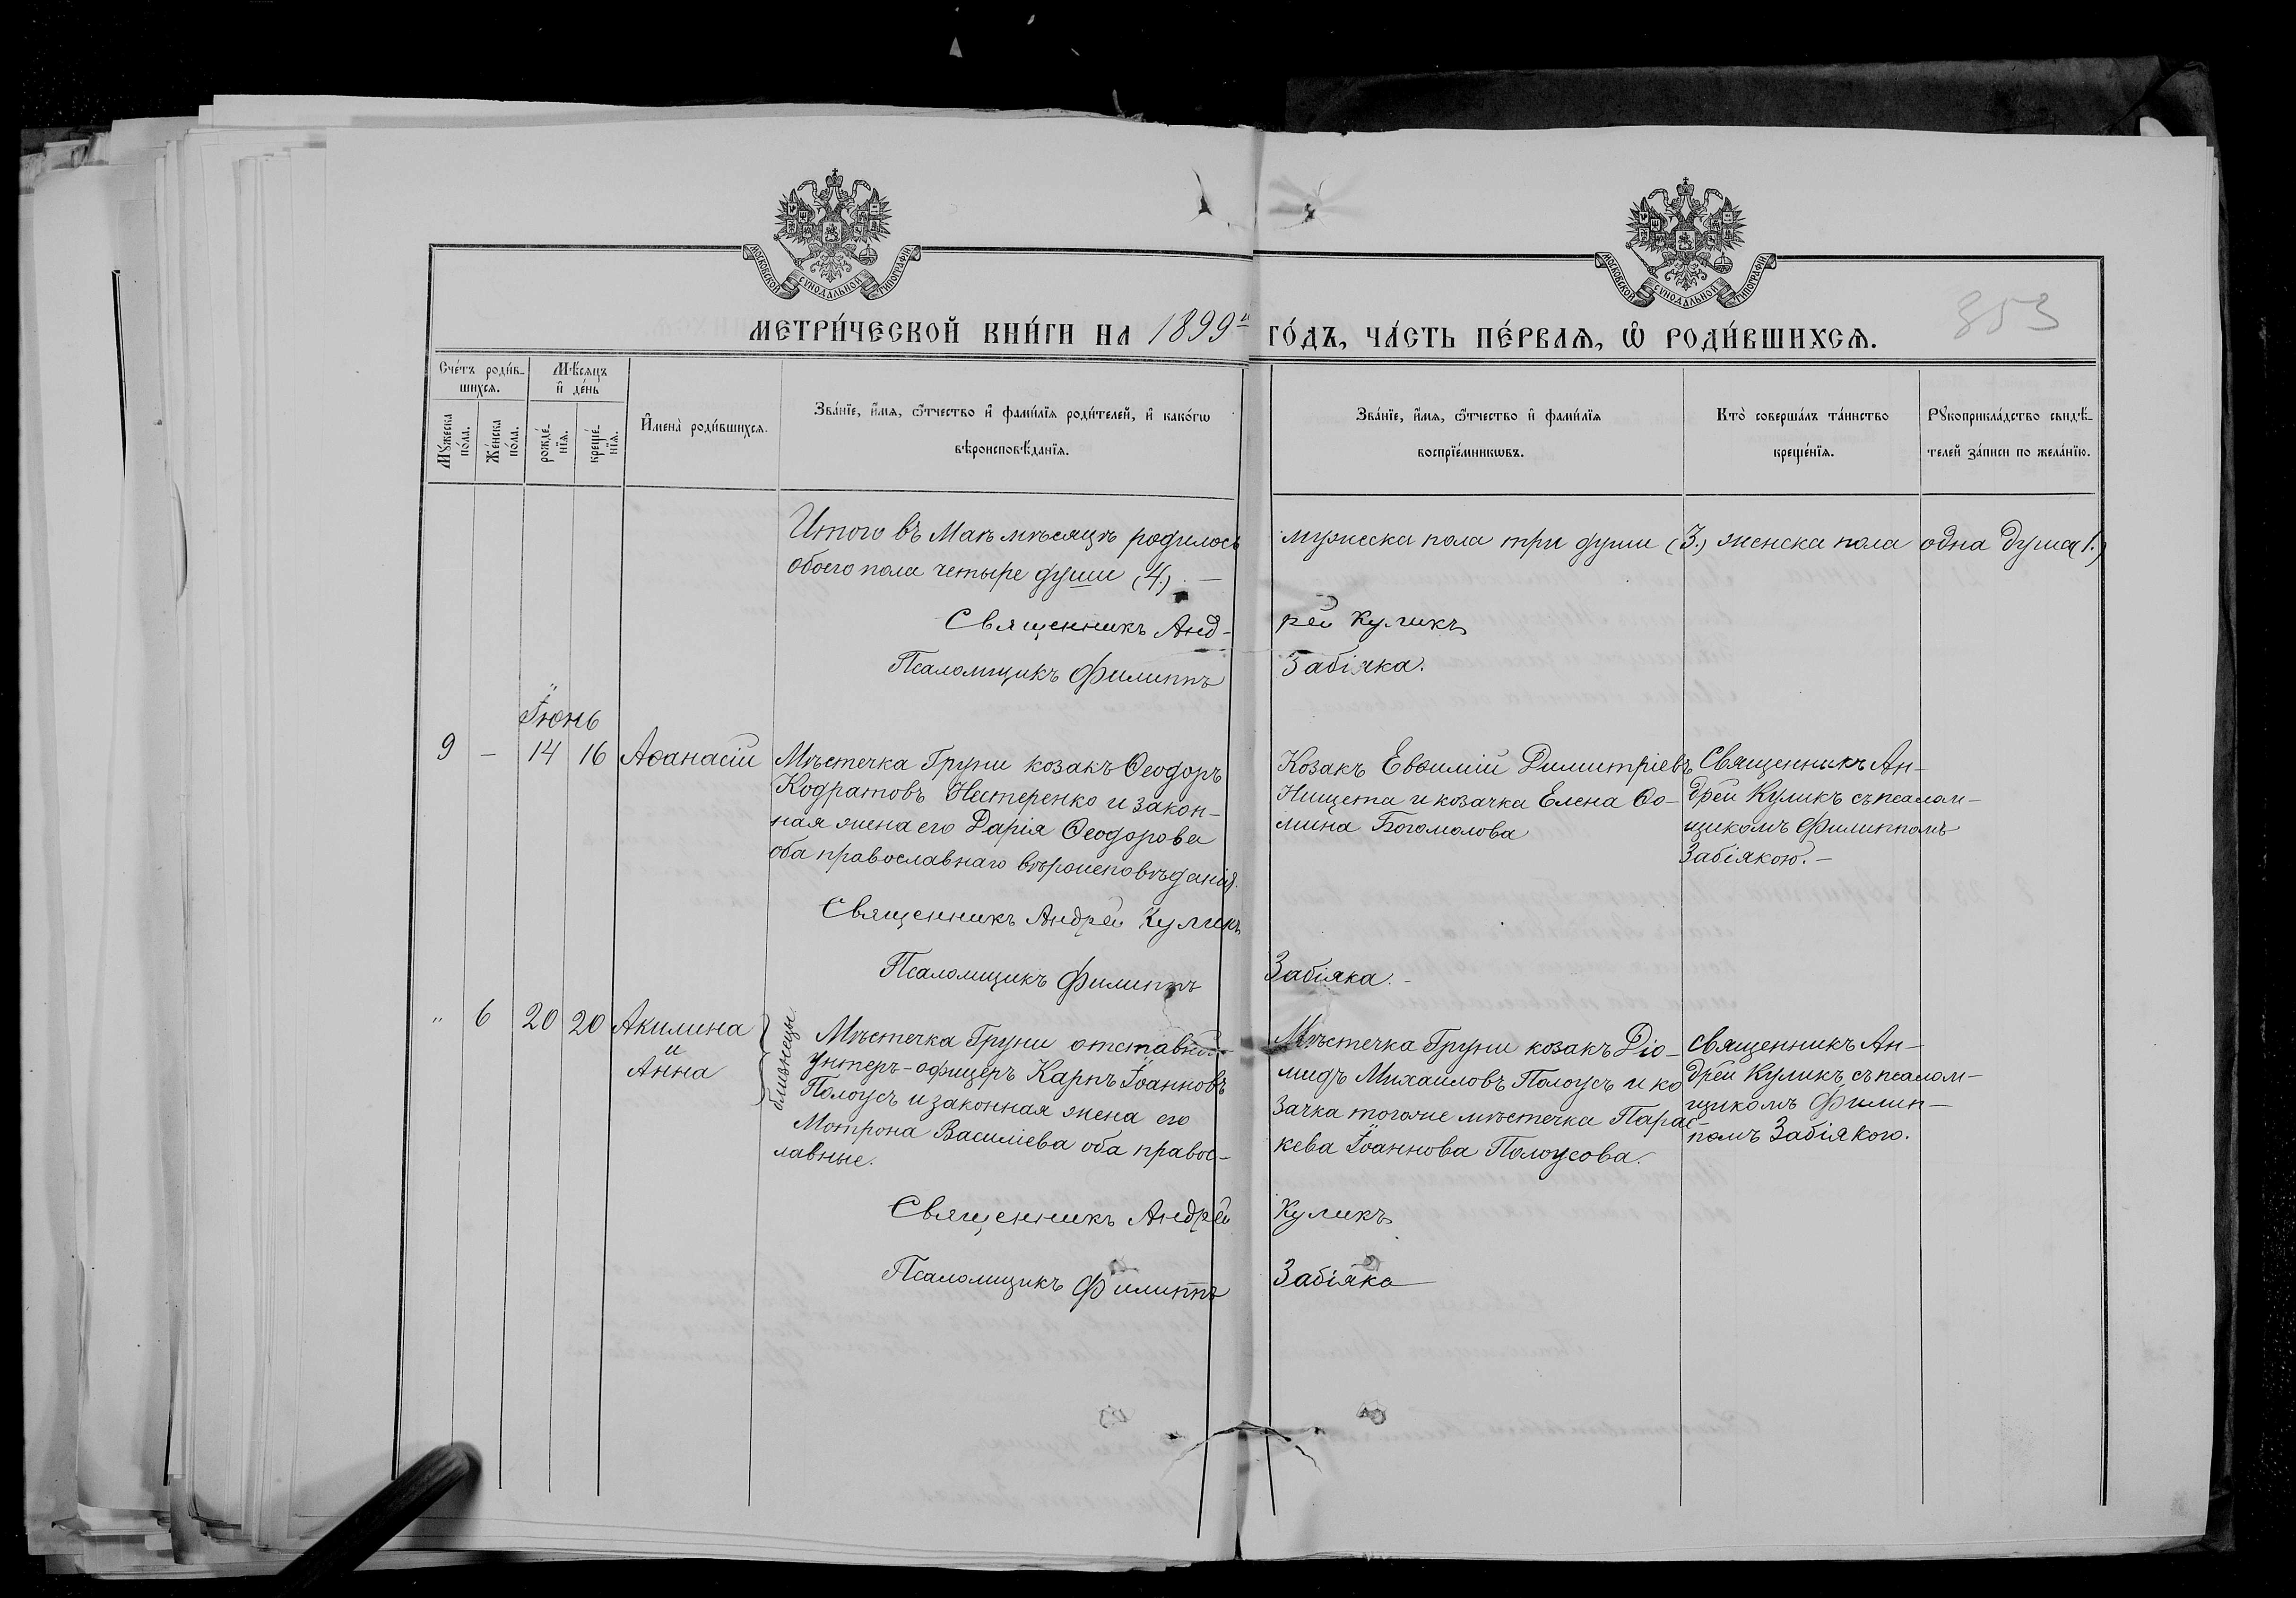 МОСКОВСКОЙ СѴНОДАЛЬНОЙ ТИПОГРАФІИ
МОСКОВСКОЙ СѴНОДАЛЬНОЙ ТИПОГРАФІИ
353
МЕТРИ́ЧЕСКОЙ КНИ́ГИ НА 1899й ГО́ДЪ, ЧА́СТЬ ПЕ́РВАѦ, Ѡ҆ РОДИ́ВШИХСѦ.
Сче́тъ роди́в-
шихсѧ.
Мѣ́сѧцъ
и҆ де́нь
Мꙋ́жеска
по́ла.
Же́нска
по́ла.
рожде́-
нїѧ.
креще́-
нїѧ.
И҆мена̀ роди́вшихсѧ.
Зва́нїе, и҆́мѧ, ѻ҆́тчество и҆ фами́лїѧ роди́телей, и҆ како́гѡ
вѣроисповѣ́данїѧ.
Зва́нїе, и҆́мѧ, ѻ҆́тчество и҆ фами́лїѧ
воспрїе́мникѡвъ.
Кто̀ соверша́лъ та́инство
креще́нїѧ.
Рꙋкоприкла́дство свидѣ́-
телей за́писи по жела́нїю.
Итого въ Маѣ мѣсяцѣ родилось мужеска пола три души (3.) женска пола одна душа (1.)
обоего пола четыре души (4.). —
Священникъ Анд- рей Куликъ
Псаломщикъ Филиппъ Забіяка.
Іюнь
9 — 14 16 Аѳанасій
Мѣстечка Груни козакъ Ѳеодоръ
Кодратовъ Нестеренко и закон-
ная жена его Дарія Ѳеодорова
оба православнаго вѣроисповѣданія.
Козакъ Евѳимій Димитріевъ
Нищета и козачка Елена Ѳо-
мина Богомолова
Священникъ Ан-
дрей Куликъ съ псалом-
щикомъ Филиппомъ
Забіякою. —
Священникъ Андрей Куликъ
Псаломщикъ Филиппъ Забіяка. -
" 6 20 20 Акилина
и
Анна
близнецы
Мѣстечка Груни отставной
унтеръ-офицеръ Карпъ Іоанновъ
Полоусъ и законная жена его
Мотрона Василіева оба правос-
лавные.
Мѣстечка Груни козакъ Діо-
мидъ Михаиловъ Полоусъ и ко
зачка тогоже мѣстечка Парас-
кева Іоаннова Полоусова.
Священникъ Ан-
дрей Куликъ съ псалом-
щикомъ Филип-
помъ Забіякою.
Священникъ Андрей Куликъ
Псаломщикъ Филиппъ Забіяка